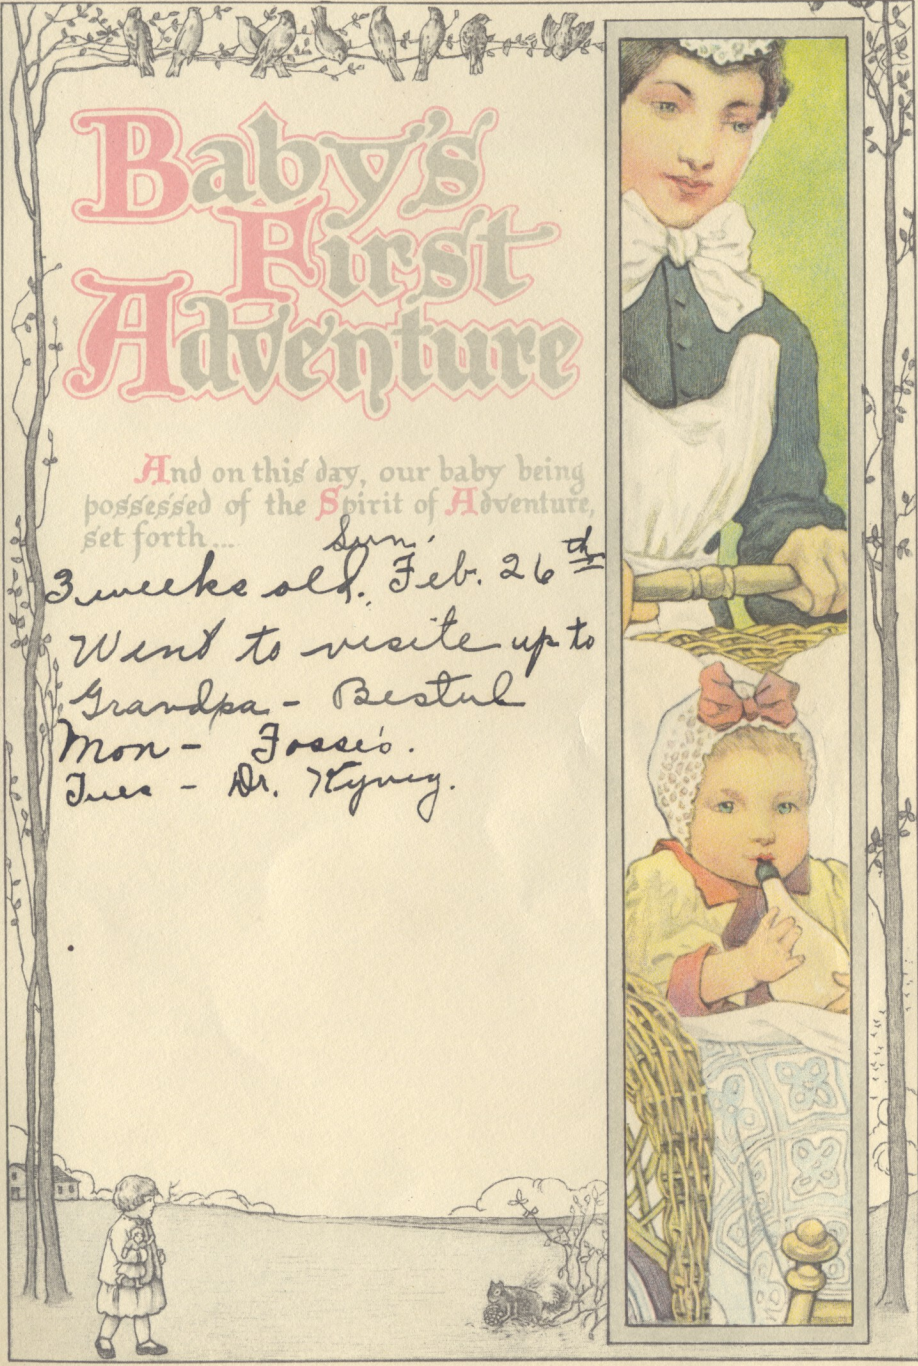 Baby's
First
Adventure
And on this day, our baby being
possessed of the Spirit of Adventure,
set forth...
Sun.
3 weeks old. Feb. 26th
Went to visite up to
Grandpa - Bestul
Mon - Fosse's.
Tues - Dr.